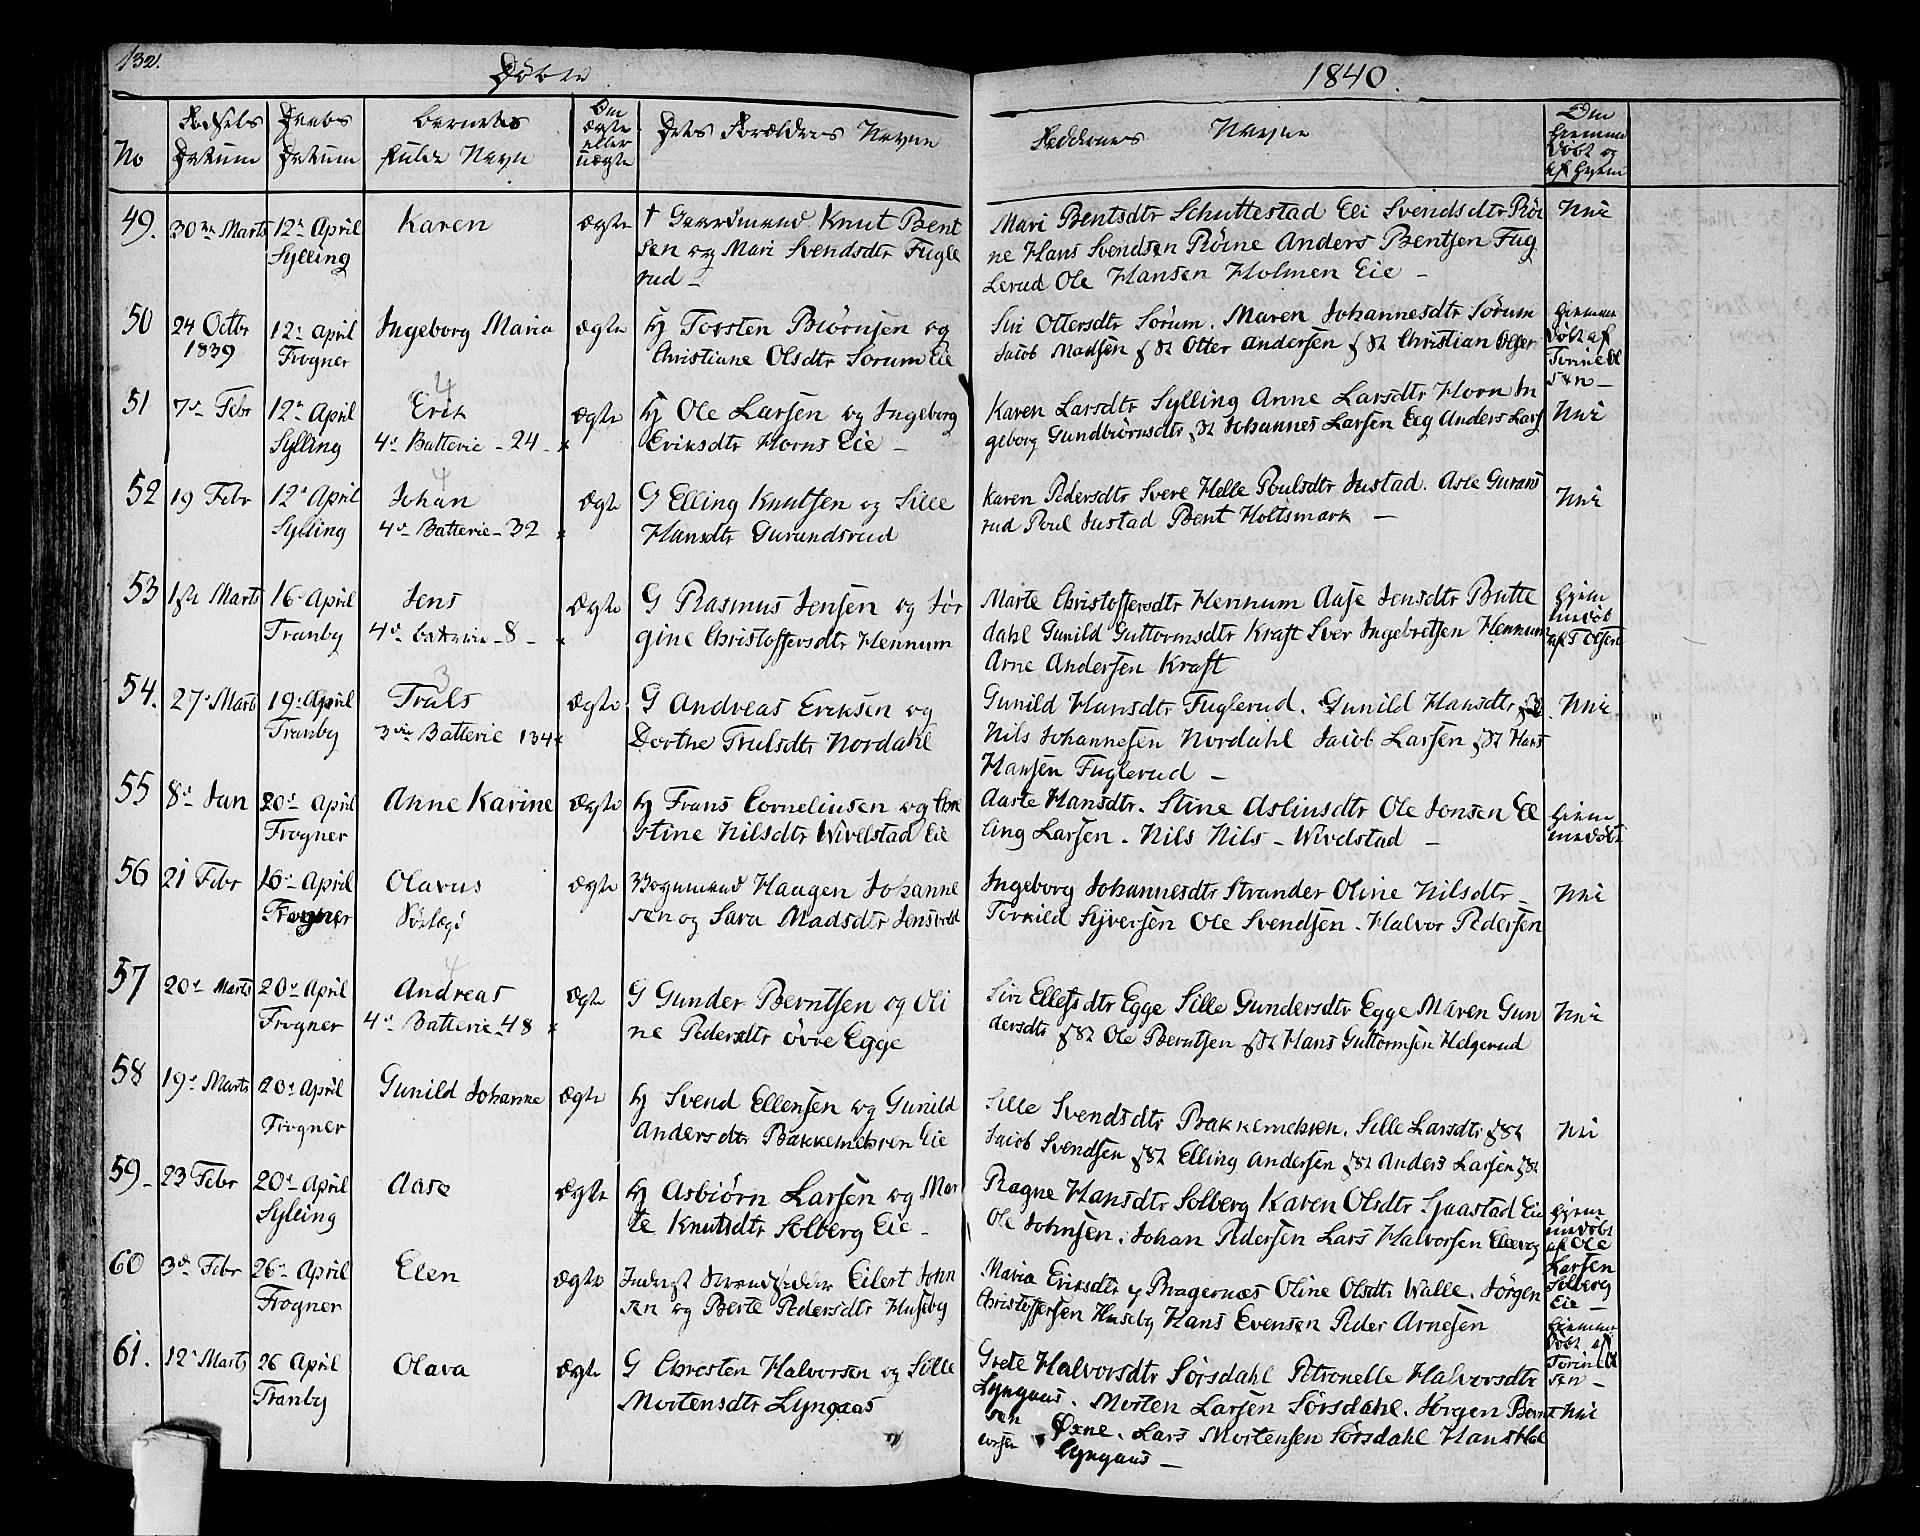 132.
Döbte
1840.
No
Fødsels Datum
Daabs Datum
Barnets fulde Navn
Om ægte eller uægte
Dets Forældres Navne
Faddernes Navne
Om hiemme døbt og af hvem
49. 30te Marts 12te April Karen Ægte † Gaardmand Knut Bent Mari Bentsdtr Schuttestad Eli Svendsdtr Röi Nei
Sylling sen og Mari Svendsdtr Fugle ne Hans Svendsen Röine Anders Bentsen Fug
rud – lerud Ole Hansen Holmen Eie –
50 24 Octbr 12te April Ingeborg Maria Ægte Hj Torsten Biörnsen og Siri Ottersdtr Sorum. Maren Johannesdtr Sörum Hiemme
1839 Frogner Christiane Olsdtr Sorum Eie Jacob Madsen Otter Andersen Christian døbt af
51 7de Febr 12te April Erik Ægte Hj Ole Larsen og Ingeborg Karen Larsdtr Sylling Anne Larsdtr Horn In Nei
Sylling 4de Batterie – 24 – Eriksdtr Horns Eie – geborg Gundbiörnsdtr Johannes Larsen Eeg Anders Lars
52 19 Febr 12te April Johan Ægte G Elling Knutsen og Sille Karen Pedersdtr Svere Helle Poulsdtr Justad. Asle Nei
Sylling 4de Batterie – 32 Hansdtr Gurandsrud rud Poul Justad Bent Holtsmark –
53 1ste Marts 16 April Jens Ægte G Rasmus Jensen og Jör Marte Christoffersdtr Hennum Aase Jensdtr Butte Hiem
Tranby 4de batterie – 8 – gine Christoffersdtr Hennum dahl Gunild Guttormsdtr Kraft Sver Ingebretsen Hennum medöbt
Arne Andersen Kraft af T Olsen
54. 27de Marts 19de April Truls Ægte G Andreas Eriksen og Gunild Hansdtr Fuglerud. Gunild Hansdtr Nei
Tranby 3die Batterie 134 Dorthe Trulsdtr Nordahl Nils Johannesen Nordahl Jacob Larsen Hans
Hansen Fuglerud –
55 8de Jan 20de April Anne Karine Ægte Hj Frans Corneliusen og Chri Aaste Hansdtr. Stine Aslinsdtr Ole Jonsen El Hiem
Frogner stine Nilsdtr Wivelstad Eie ling Larsen. Nils Nils – Wivelstad – medöbt
56 21 Febr 16de April Olavus Ægte Bogmand Haagen Johanne Ingeborg Johannesdtr Strander Oline Nilsdtr – Nei
Frogner sen og Sara Madsdtr Jensvold Torkild Syversen Ole Svendsen. Halvor Pedersen
57 20de Marts 20de April Andreas Ægte G Gunder Berntsen og Oli Siri Ellefsdtr Egge Sille Gundersdtr Egge Maren Gun Nei
Frogner 4de Batterie – 48 ne Pedersdtr övre Egge dersdtr Ole Berntsen Hans Guttormsen Helgerud
58 19de Marts 20de April Gunild Johanne Ægte Hj Svend Ellensen og Gunild Sille Svendsdtr Bakkemehren. Sille Larsdtr Nei
Frogner Andersdtr Bakkemehren Eie Jacob Svendsen Elling Andersen Anders Larsen
59 – 23 Febr 20de April Aase Ægte Hj Asbiörn Larsen og Mar Ragne Hansdtr Solberg Karen Olsdtr Sjaastad Eie Hjem
Sylling te Knutsdtr Solberg Eie – Ole Johnsen. Johan Pedersen Lars Halvorsen medöbt
af Ole Larsen Solberg Eie –
60 3de Febr 26de April Elen Ægte Inderst Strandsidder Eilert John Maria Eriksdtr Bragernæs Oline Olsdtr Walle. Jörgen Hiemme
Frogner sen og Berte Pedersdtr Huseby Christoffersen Huseby Hans Evensen Peder Arnesen döbt af
61. 12te Marts 26 April Olava Ægte G Chresten Halvorsen og Sille Grete Halvorsdtr Sörsdahl Petronelle Halvorsdtr
Tranby Mortensdtr Lyngaas Lyngaas. Morten Larsen Sörsdahl. Jörgen Bernt Nei
sen Oxne. Lars Mortensen Sörsdahl Hans Hal
vorsen Lyngaas –